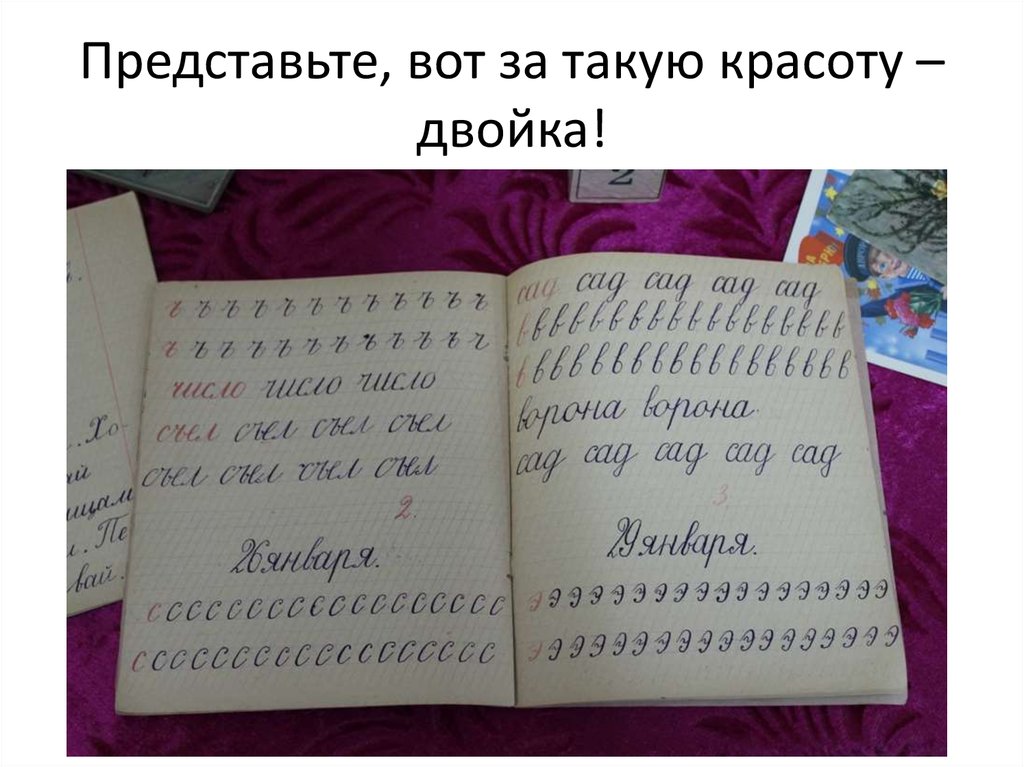 Представьте, вот за такую красоту –
двойка!
2
. Хо-
ай
ищам
и. Пе-
вай.
ъ ъ ъ ъ ъ ъ ъ ъ ъ ъ ъ ъ
ъ ъ ъ ъ ъ ъ ъ ъ ъ ъ ъ ъ
число число число
съел съел съел съел
съел съел съел съел
2.
26 января.
с с с с с с с с с с с с с с с с с с
с с с с с с с с с с с с с с с с с с
сад сад сад сад сад
в в в в в в в в в в в в в в в в в
в в в в в в в в в в в в в в в в в
ворона ворона.
сад сад сад сад сад
3.
29 января.
э э э э э э э э э э э э э э э э э
э э э э э э э э э э э э э э э э э